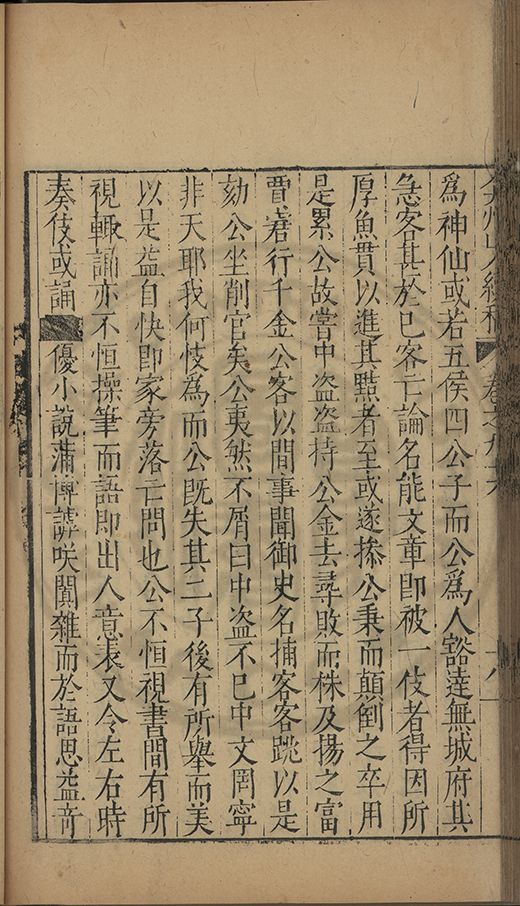 弇州山人續稿 卷之九十六 十八
為神仙或若五侯四公子而公為人豁達無城府其
急客甚於已客亡論名能文章即被一伎者得因所
厚魚貫以進其黠者至或遂撡公秉而顛倒之卒用
是累公故嘗中盗盗持公金去尋敗而株及揚之富
賈賈行千金公客以間事聞御史名捕客客跳以是
劾公坐削官矣公夷然不屑曰中盗不已中文罔寧
非天耶我何忮為而公既失其二子後有所舉而美
以是益自快即家旁落亡問也公不恒視書間有所
視輙誦亦不恒操筆而語即出人意表又令左右時
奏伎或誦 優小説蒲博諧咲闐雜而於語思益奇